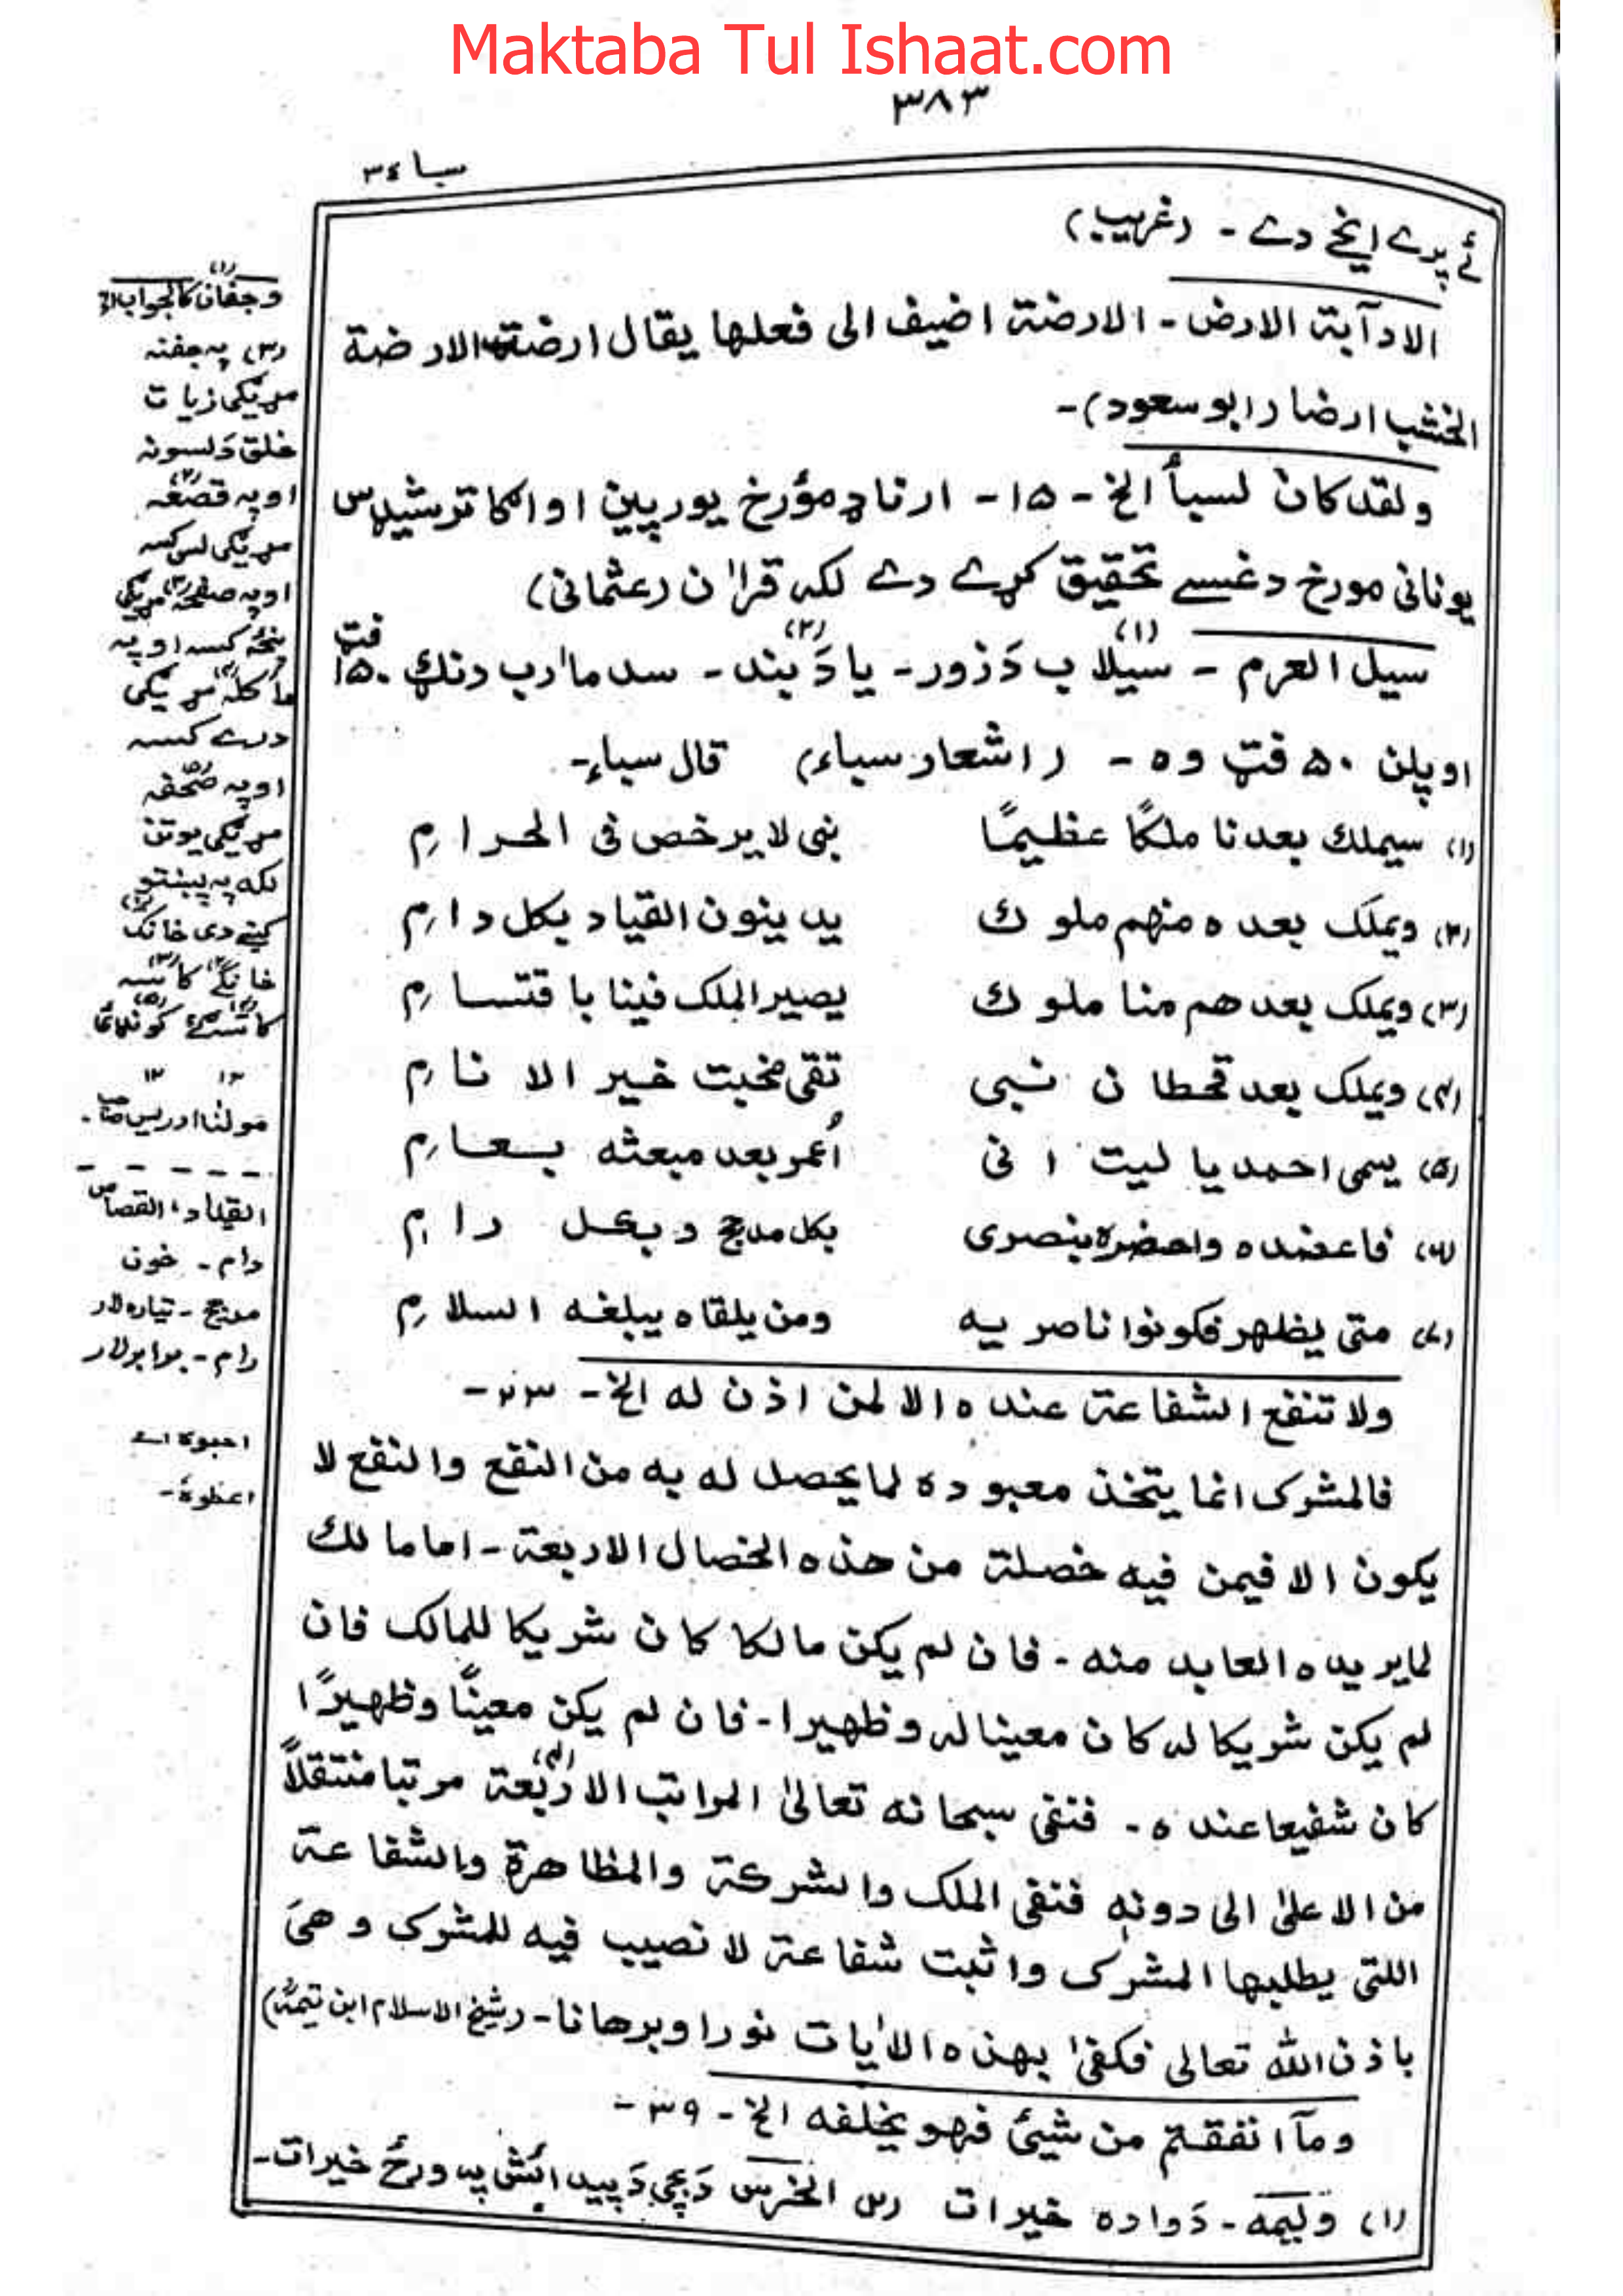 Maktaba Tul Ishaat.com
٣٨٣
سبا ٣٤
ئے پرے ایخے دے - (غریب)
الا دآبة الارض - الارضة اضيف الى فعلها يقال ارضت الارضة
الخشب ارضا (ابو سعود) -
ولقد كان لسبأ الخ - ١٥ - ارناډ مؤرخ يورپين او
يونانی مورخ دغسے تحقيق کړے دے لکہ قرآن (عثمانی)
سیل العرم - (١) سیلاب دَ زور - یا (٢) دَ بند - سد مأرب دنګ ١٥٠ فټ
او پلن ٥٠ فټ وہ - (اشعار سباء) قال سباء -
(١) سيملك بعدنا ملكًا عظيمًا نبی لا يرخص فی الحرام
(٢) ويملك بعده منهم ملوك يدينون القياد بكل دام
(٣) ويملك بعدهم منا ملوك يصير الملك فينا باقتسام
(٤) ويملك بعد قحطان نبی تقی مخبت خير الانام
(٥) يسمی احمد يا ليت انی أعمر بعد مبعثه بعام
(٦) فاعضده واحضره بنصری بكل مدجج وبكل رام
(٧) متی يظهر فكونوا ناصريه ومن يلقاه يبلغه السلام
ولا تنفع الشفاعة عنده الا لمن اذن له الخ - ٢٣ -
فالمشرك انما يتخذ معبوده لما يحصل له به من النفع والنفع لا
يكون الا فيمن فيه خصلة من هذه الخصال الاربعة - اما مالك
لما يريده العابد منه - فان لم يكن مالكا كان شريكا للمالك فان
لم يكن شريكا له كان معينا له وظهيرا - فان لم يكن معينًا وظهيرًا
كان شفيعا عنده - فنفی سبحانه تعالیٰ المراتب الاربعة (٤) مرتبا منتقلاً
من الاعلیٰ الی دونه فنفی الملك والشركة والمظاهرة والشفاعة
اللتی يطلبها المشرك واثبت شفاعة لا نصيب فيه للمشرك وهی
باذن الله تعالی فكفیٰ بهذه الاٰيات نورا وبرهانا - (شيخ الاسلام ابن تيمية)
ومآ انفقتم من شيئ فهو يخلفه الخ - ٣٩ -
(١) وليمه - دَ واده خيرات (٢) الخرس دَ بچی دَ پيدائش په ورځ خيرات -
(١) وجفان كالجواب الخ
(٣) په جفنه
مړيکی زيات
خلق دَ لسونه
او په قصعه
مړيکی لس کسه
او په صفحه مړيکی
پنځه کسه او په
مأكله مړيکی
درے کسه
او په صحفه
مړيکی يو تن
لکه په پښتو
کښے دی خانک
خانګے کاسه
١٢ ١٢
مولنا ادريس صاحب -
القياد، القصاص
دام - خون
مدجج - تياره لار
رام - برابر لار
احبوه اے
اعطوه -